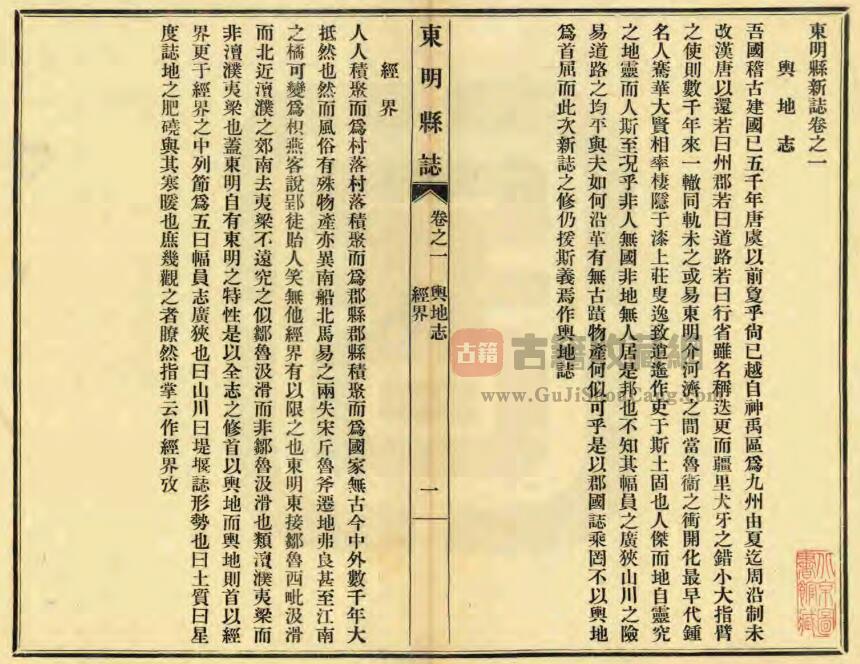 東明縣新誌卷之一
輿地志
吾國稽古建國已五千年唐虞以前敻乎尙已越自神禹區爲九州由夏迄周沿制未
改漢唐以還若曰州郡若曰道路若曰行省雖名稱迭更而疆里犬牙之錯小大指臂
之使則數千年來一轍同軌未之或易東明介河濟之間當魯衞之衝開化最早代鍾
名人騫華大賢相率棲隱于漆上莊叟逸致逍遙作吏于斯土固也人傑而地自靈究
之地靈而人斯至况乎非人無國非地無人居是邦也不知其幅員之廣狹山川之險
易道路之均平與夫如何沿革有無古蹟物產何似可乎是以郡國誌乘罔不以輿地
爲首屈而此次新誌之修仍援斯義焉作輿地誌
東明縣誌
卷之一
輿地志
經界
一
經界
人人積聚而爲村落村落積聚而爲郡縣郡縣積聚而爲國家無古今中外數千年大
抵然也然而風俗有殊物產亦異南船北馬易之兩失宋斤魯斧遷地弗良甚至江南
之橘可變爲枳燕客說郢徒貽人笑無他經界有以限之也東明東接鄒魯西毗汲滑
而北近瀆濮之郊南去夷梁不遠究之似鄒魯汲滑而非鄒魯汲滑也類瀆濮夷梁而
非瀆濮夷梁也蓋東明自有東明之特性是以全志之修首以輿地而輿地則首以經
界更于經界之中列節爲五曰幅員志廣狹也曰山川曰堤堰誌形勢也曰土質曰星
度誌地之肥磽與其寒暖也庶幾觀之者瞭然指掌云作經界攷
古籍
古籍收藏網
www.GuJiShouCang.com